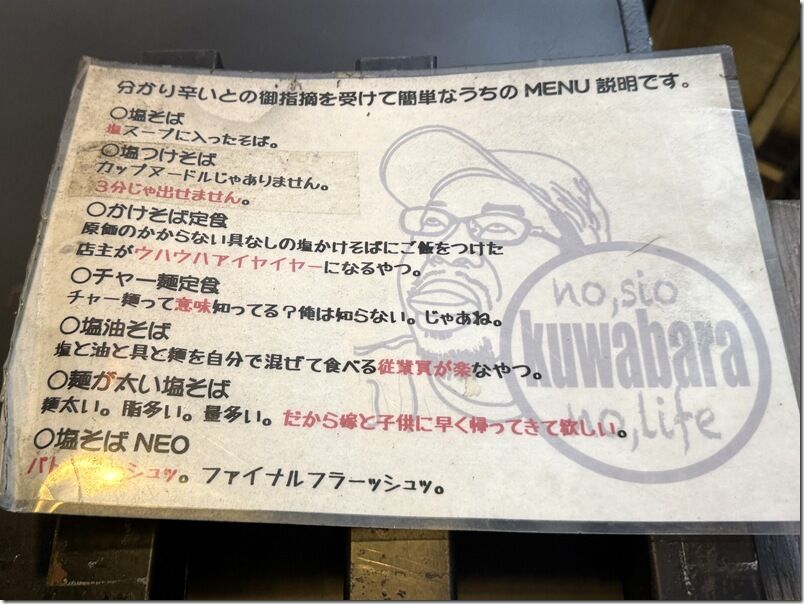 分かり辛いとの御指摘を受けて簡単なうちのMENU説明です。
〇塩そば
塩スープに入ったそば。
〇塩つけそば
カップヌードルじゃありません。
3分じゃ出せません。
〇かけそば定食
原価のかからない具なしの塩かけそばにご飯をつけた
店主がウハウハアイヤイヤーになるやつ。
〇チャー麺定食
チャー麺って意味知ってる?俺は知らない。じゃあね。
〇塩油そば
塩と油と具と麺を自分で混ぜて食べる従業員が楽なやつ。
〇麺が太い塩そば
麺太い。脂多い。量多い。だから嫁と子供に早く帰ってきて欲しい。
〇塩そばNEO
シュッ。ファイナルフラーッシュッ。
no,sio
kuwabara
no,life